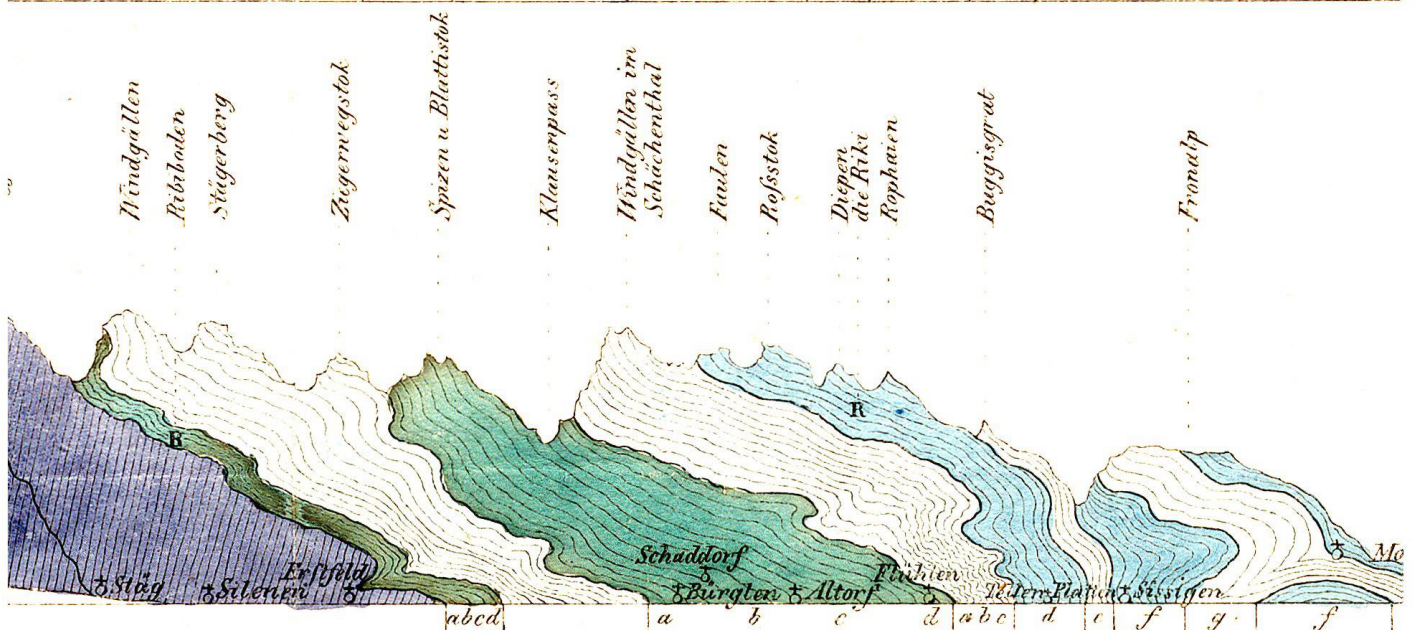 Windgällen
Ribiboden
Stägerberg
Zügerwegstok
Spizen u Blattistok
Klausenpass
Windgällen im
Schächenthal
Faulen
Roſsstok
Diepen
die Riki
Rophaien
Buggisgrat
Fronalp
B
R
Schaddorf
Erstfeld
Flühlen
Stäg
Silenen
Bürglen
Altorf
Tellen-Platten
Sissigen
Mo
a b c d
a b c d
a b c d e f g f